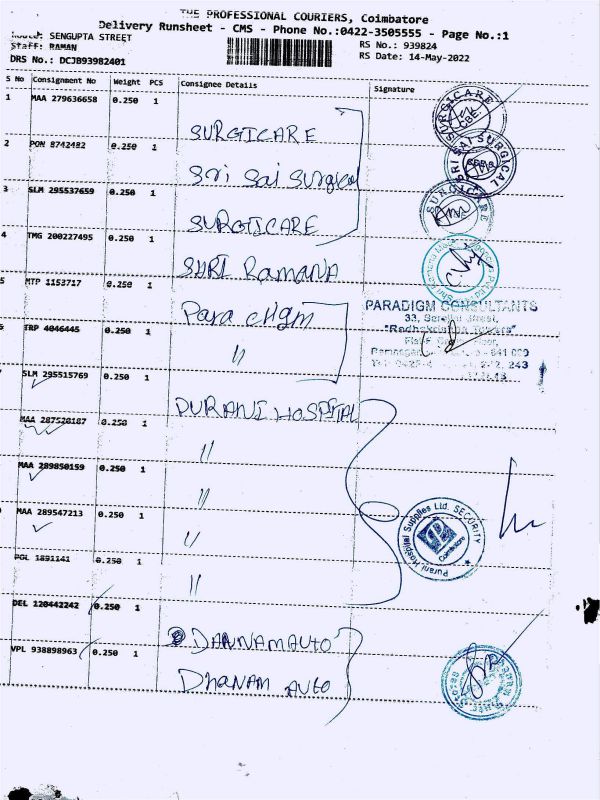 THE PROFESSIONAL COURIERS, Coimbatore
Delivery Runsheet - CMS - Phone No.:0422-3505555 - Page No.:1
Route: SENGUPTA STREET
Staff: RAMAN
RS No.: 939824
DRS No.: DCJB93982401
RS Date: 14-May-2022
S No Consignment No Weight PCS Consignee Details Signature
1 MAA 279636658 0.250 1 SURGICARE
2 PON 8742482 0.250 1 Sri Sai Surgical
3 SLM 295537659 0.250 1 SURGICARE
4 TMG 200227495 0.250 1 SHRI RAMANA
5 MTP 1153717 0.250 1 Para digm
6 TRP 4046445 0.250 1 "
7 SLM 295515769 0.250 1 PURANI HOSPITAL
MAA 287520187 0.250 1 "
MAA 289850159 0.250 1 "
MAA 289547213 0.250 1 "
PGL 1891141 0.250 1 "
DEL 120442242 0.250 1 DANNAM AUTO
VPL 938898963 0.250 1 DhanAM AUTO
SURGICARE
SRI SAI SURGICAL
SURGICARE
PARADIGM CONSULTANTS
"Radhakrishna Towers"
Purani Hospital Supplies Ltd. SECURITY
Coimbatore